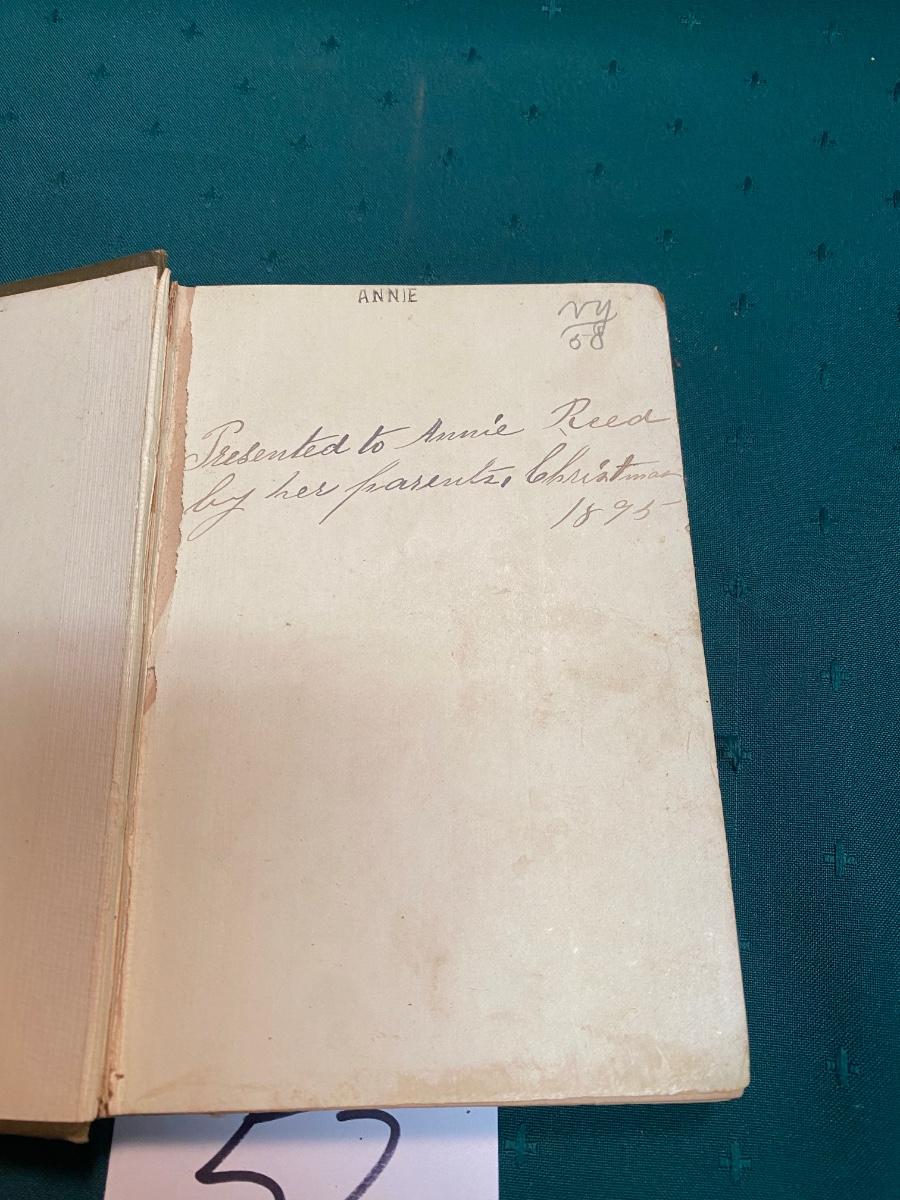 ANNIE
Presented to Annie Reed
by her parents, Christmas
1895